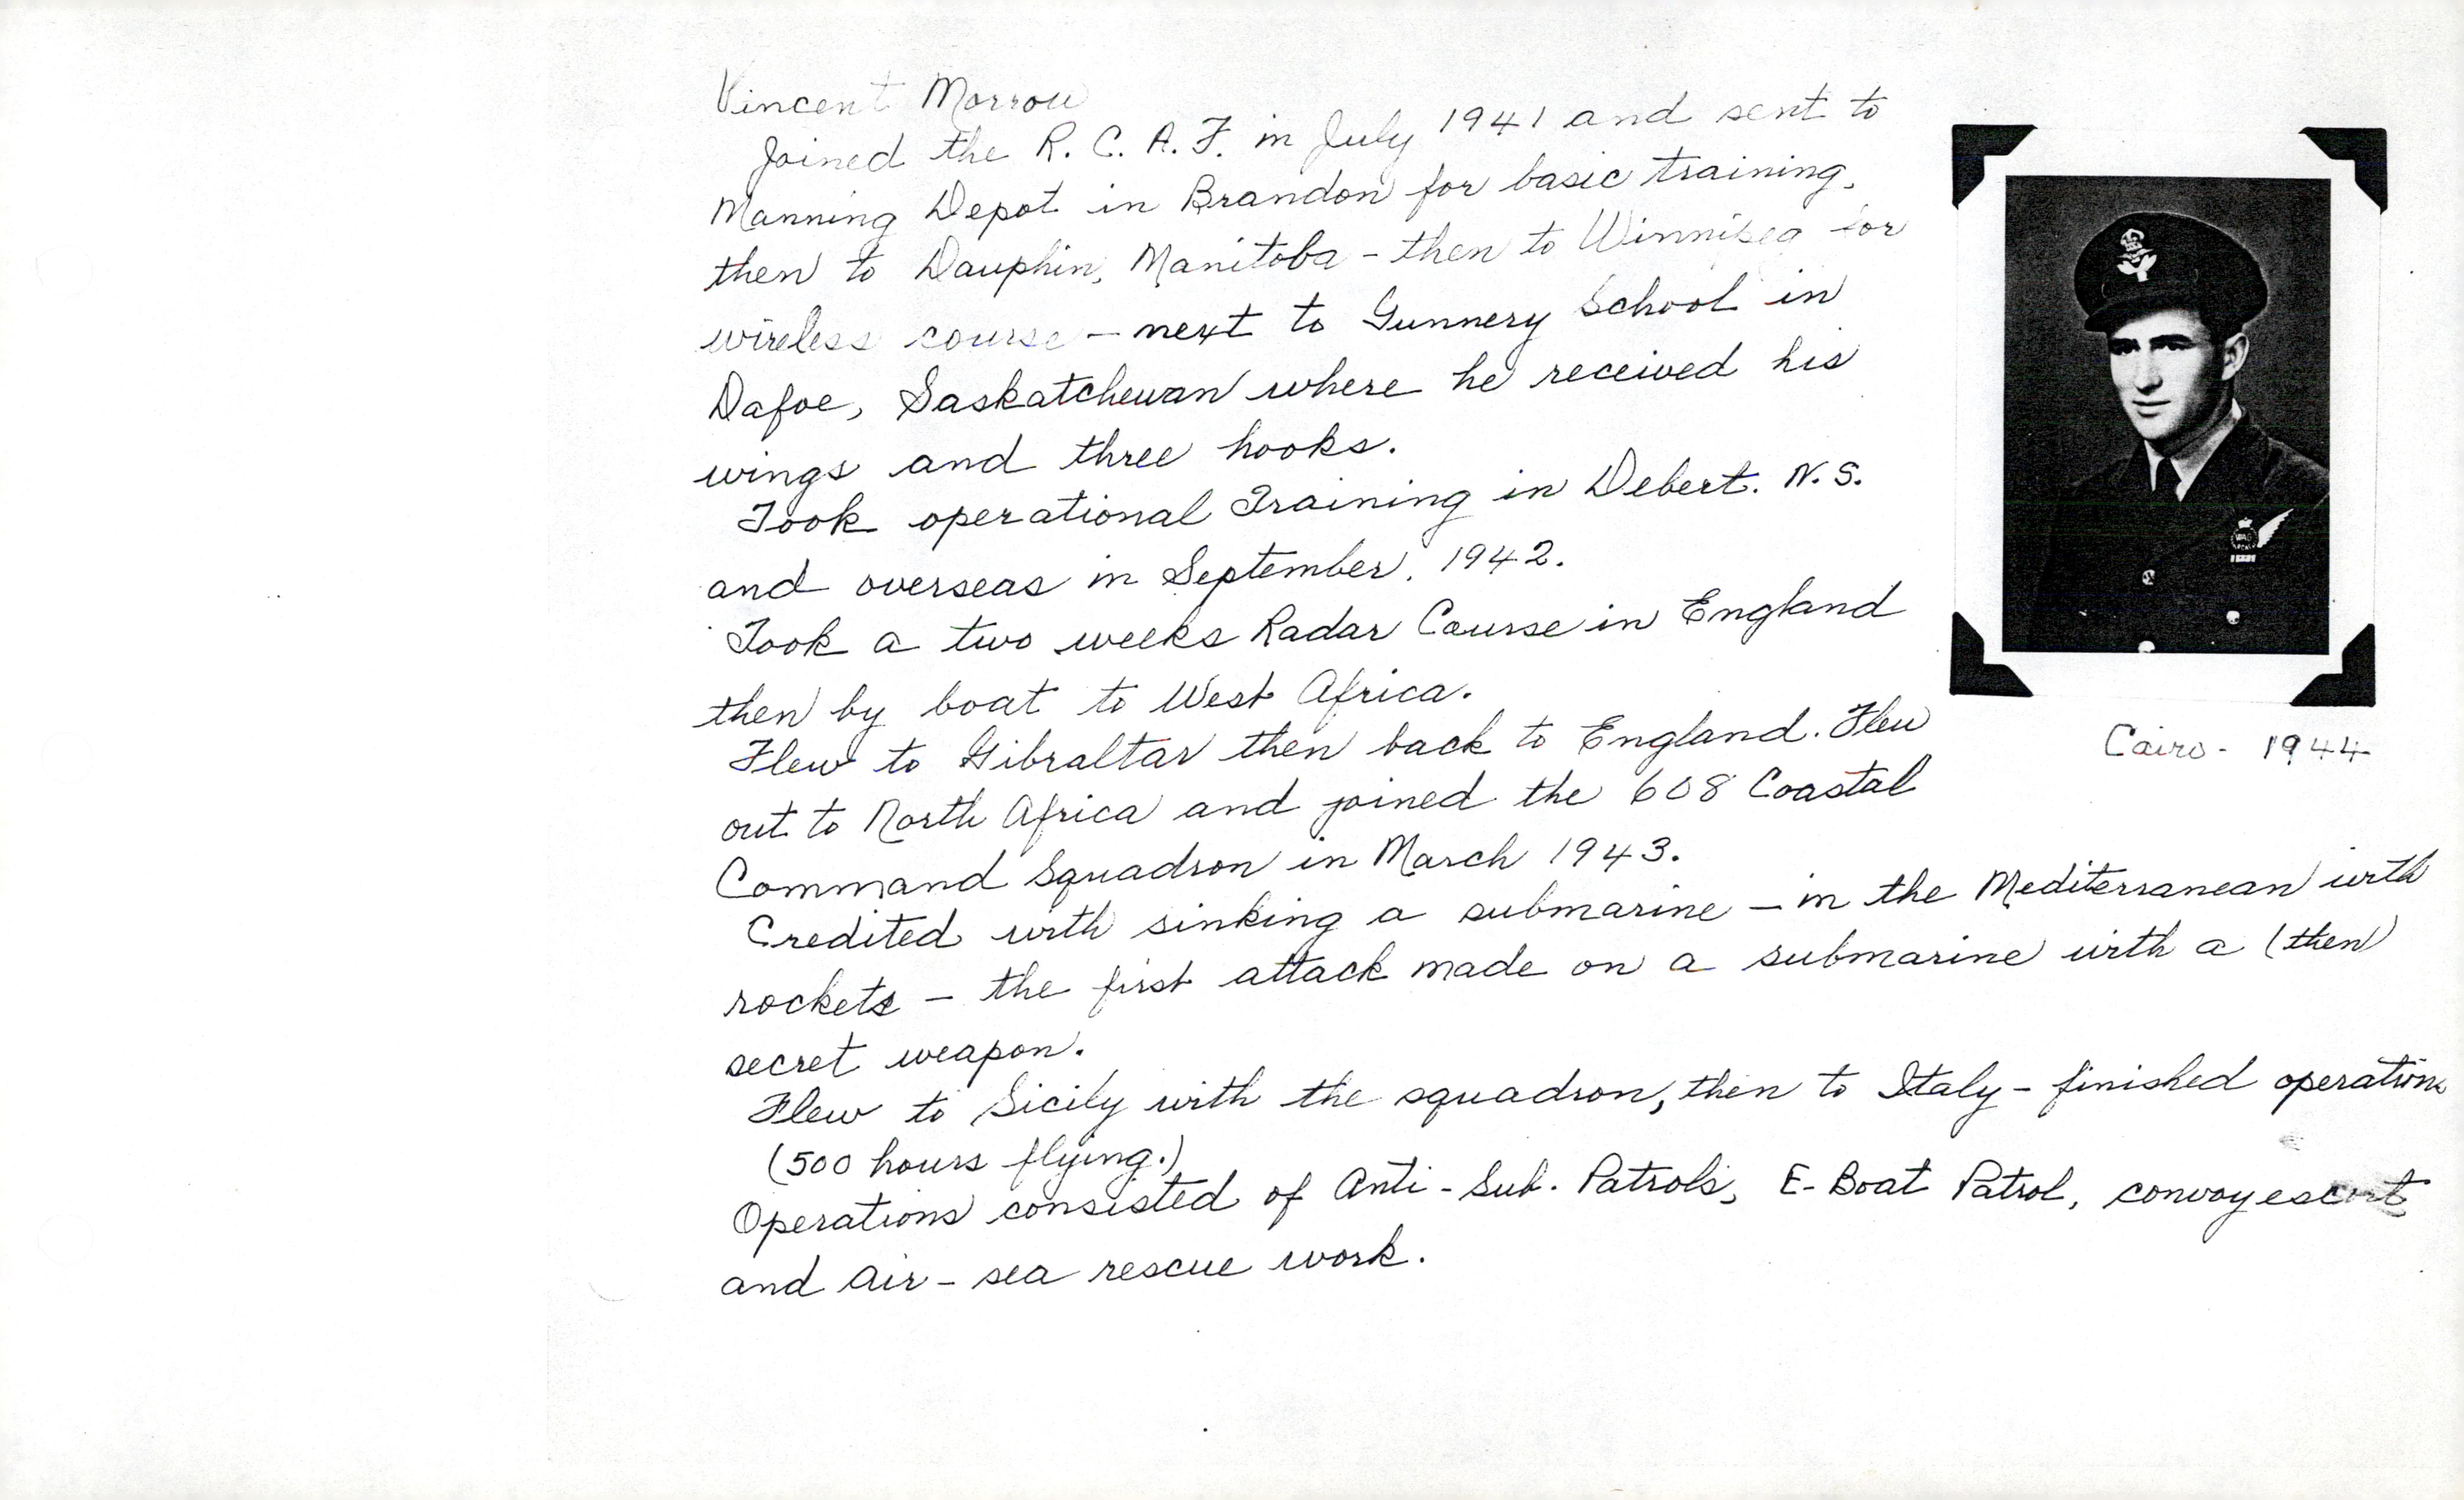 Vincent Morrow
Joined the R. C. A. F. in July 1941 and sent to
Manning Depot in Brandon for basic training,
then to Dauphin, Manitoba - then to Winnipeg for
wireless course - next to Gunnery School in
Dafoe, Saskatchewan where he received his
wings and three hooks.
Took operational Training in Debert. N.S.
and overseas in September, 1942.
Took a two weeks Radar Course in England
then by boat to West Africa.
Flew to Gibraltar then back to England. Flew
out to North Africa and joined the 608 Coastal
Command Squadron in March 1943.
Credited with sinking a submarine - in the Mediterranean with
rockets - the first attack made on a submarine with a (then)
secret weapon.
Flew to Sicily with the squadron, then to Italy - finished operations
(500 hours flying.)
Operations consisted of Anti-Sub. Patrols, E-Boat Patrol, convoy escort
and air-sea rescue work.
Cairo - 1944